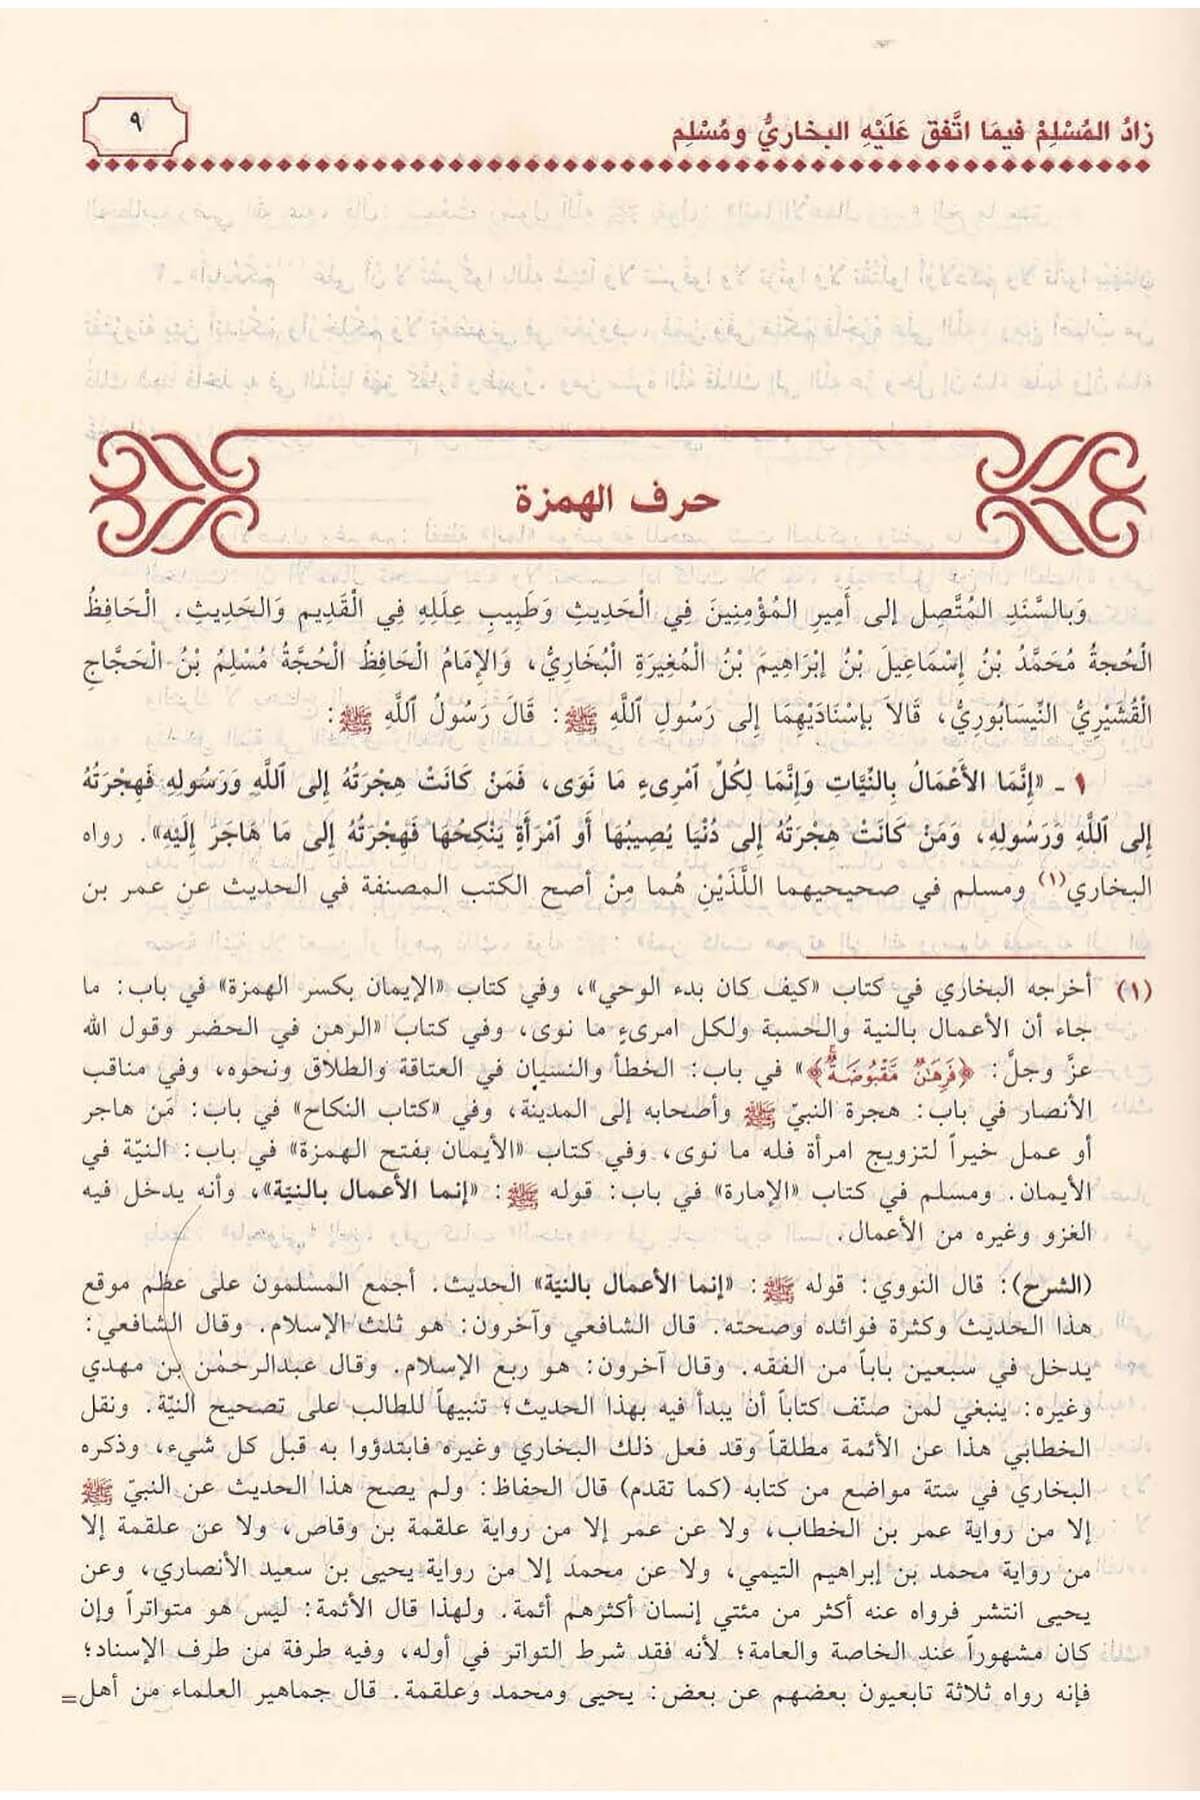 زَادُ المُسْلِمْ فيمَا اتَّفق عَلَيْهِ البخاريُّ ومُسْلِم
٩
حرف الهمزة
وَبالسَّنَدِ المُتَّصِل إلى أَمِيرِ المُؤْمِنِينَ فِي الْحَدِيثِ وَطَبِيبِ عِلَلِهِ فِي الْقَدِيمِ وَالحَدِيثِ. الْحَافِظُ
الْحُجةُ مُحَمَّدُ بْنُ إِسْمَاعِيلَ بْنُ إبْرَاهِيمَ بْنُ المُغِيرَةِ الْبُخَارِيُّ، وَالإِمَامُ الْحَافِظُ الْحُجَّةُ مُسْلِمُ بْنُ الْحَجَّاجِ
الْقُشَيْرِيُّ النَّيسَابُورِيُّ، قَالاَ بإسْنَادَيْهِمَا إلى رَسُولِ اللَّهِ ﷺ: قَالَ رَسُولُ اللَّهِ ﷺ:
١ ـ «إنَّمَا الأَعْمَالُ بِالنِّيَّاتِ وَإنَّمَا لِكُلِّ ٱمْرِىءٍ مَا نَوَى، فَمَنْ كَانَتْ هِجْرَتُهُ إلى ٱللَّهِ وَرَسُولِهِ فَهِجْرَتُهُ
إلى ٱللَّهِ وَرَسُولِهِ، وَمَنْ كَانَتْ هِجْرَتُهُ إلى دُنْيَا يُصِيبُهَا أَو ٱمْرَأَةٍ يَنْكِحُهَا فَهِجْرَتُهُ إلى مَا هَاجَرَ إلَيْهِ». رواه
البخاري(١) ومسلم في صحيحيهما اللَّذَيْنِ هُما مِنْ أصح الكتب المصنفة في الحديث عن عمر بن
(١) أخرجه البخاري في كتاب «كيف كان بدء الوحي»، وفي كتاب «الإيمان بكسر الهمزة» في باب: ما
جاء أن الأعمال بالنية والحسبة ولكل امرىءٍ ما نوى، وفي كتاب «الرهن في الحضر وقول الله
عزَّ وجلَّ: ﴿فَرِهَٰنٌ مَّقْبُوضَةٌ﴾» في باب: الخطأ والنسيان في العتاقة والطلاق ونحوه، وفي مناقب
الأنصار في باب: هجرة النبيّ ﷺ وأصحابه إلى المدينة، وفي «كتاب النكاح» في باب: مَن هاجر
أو عمل خيراً لتزويج امرأة فله ما نوى، وفي كتاب «الأيمان بفتح الهمزة» في باب: النيّة في
الأيمان. ومسلم في كتاب «الإمارة» في باب: قوله ﷺ: «إنما الأعمال بالنيّة»، وأنه يدخل فيه
الغزو وغيره من الأعمال.
(الشرح): قال النووي: قوله ﷺ: «إنما الأعمال بالنيّة» الحديث. أجمع المسلمون على عظم موقع
هذا الحديث وكثرة فوائده وصحته. قال الشافعي وآخرون: هو ثلث الإسلام. وقال الشافعي:
يدخل في سبعين باباً من الفقه. وقال آخرون: هو ربع الإسلام. وقال عبدالرحمٰن بن مهدي
وغيره: ينبغي لمن صنّف كتاباً أن يبدأ فيه بهذا الحديث؛ تنبيهاً للطالب على تصحيح النيّة. ونقل
الخطابي هذا عن الأئمة مطلقاً وقد فعل ذلك البخاري وغيره فابتدؤوا به قبل كل شيء، وذكره
البخاري في ستة مواضع من كتابه (كما تقدم) قال الحفاظ: ولم يصح هذا الحديث عن النبيّ ﷺ
إلا من رواية عمر بن الخطاب، ولا عن عمر إلا من رواية علقمة بن وقاص، ولا عن علقمة إلا
من رواية محمد بن إبراهيم التيمي، ولا عن محمد إلا من رواية يحيى بن سعيد الأنصاري، وعن
يحيى انتشر فرواه عنه أكثر من مئتي إنسان أكثرهم أئمة. ولهذا قال الأئمة: ليس هو متواتراً وإن
كان مشهوراً عند الخاصة والعامة؛ لأنه فقد شرط التواتر في أوله، وفيه طرفة من طرف الإسناد؛
فإنه رواه ثلاثة تابعيون بعضهم عن بعض: يحيى ومحمد وعلقمة. قال جماهير العلماء من أهل=